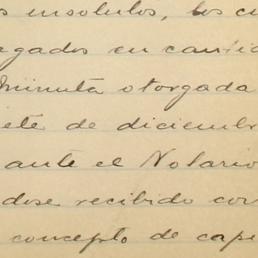 s insolutos, los cu
egados en cantid
minuta otorgada
ete de diciembr
ante el Notario
dose recibido con
concepto de cape